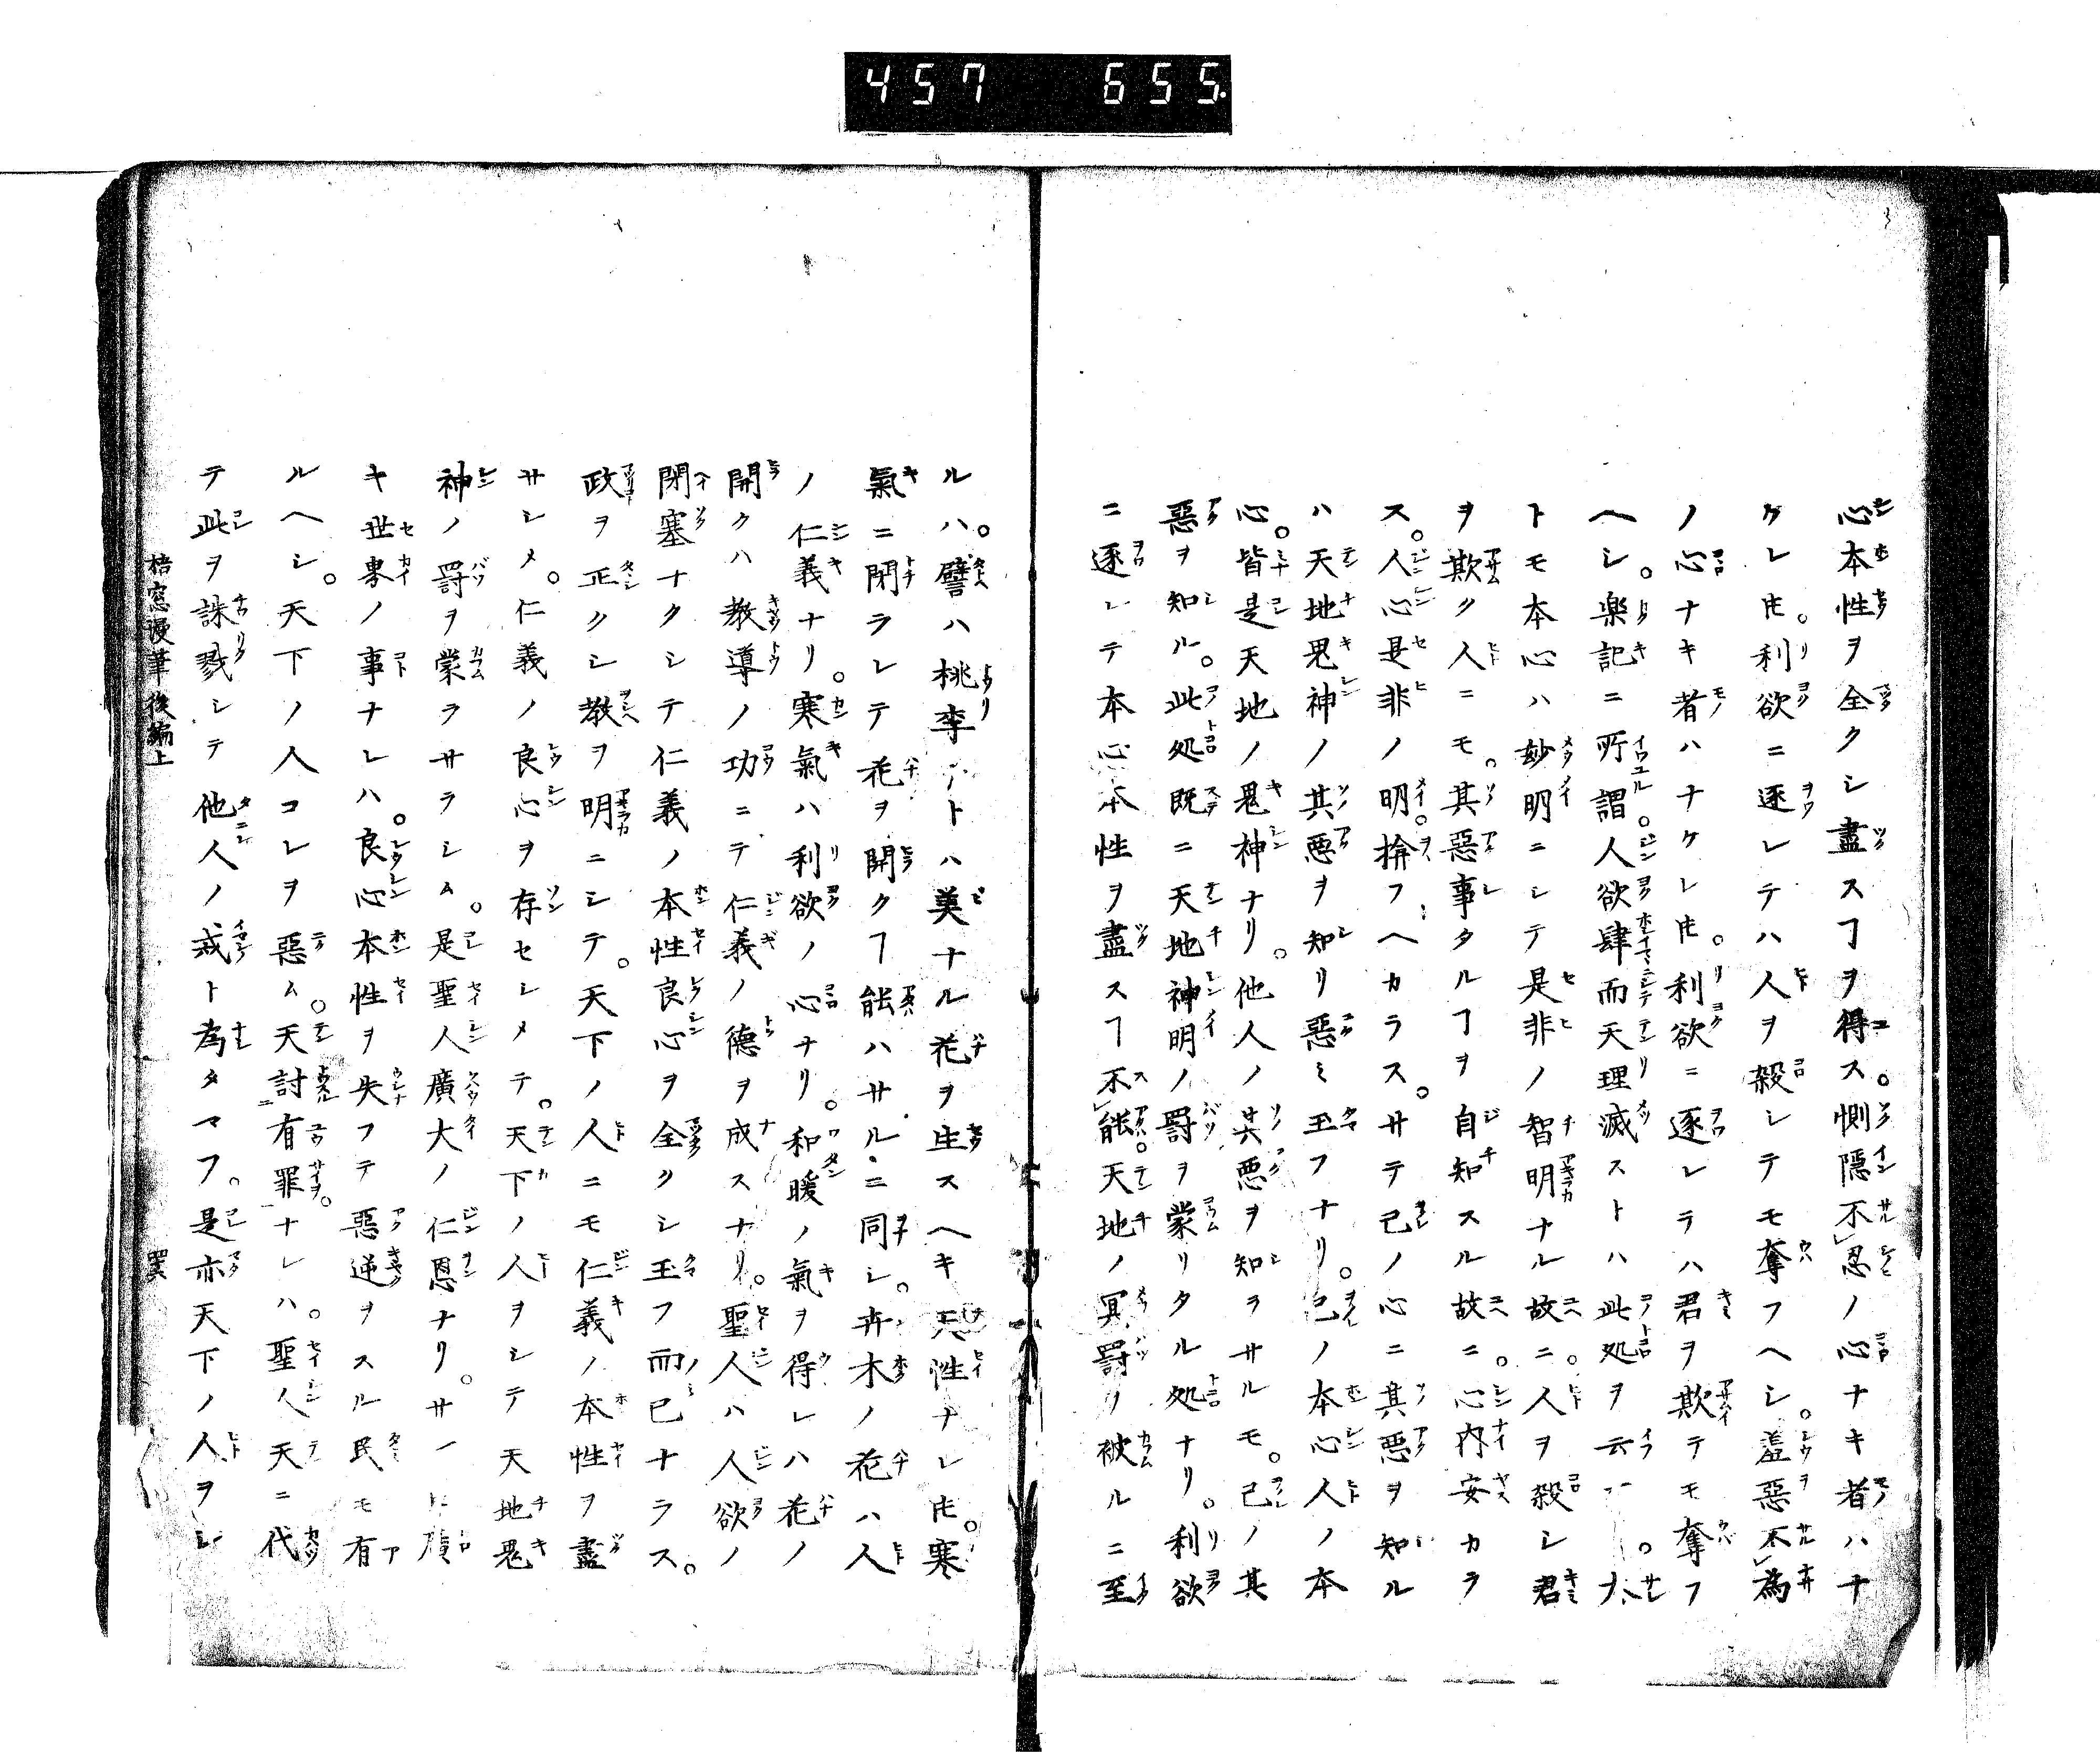 457 655.
心本性ヲ全クシ盡スヿヲ得ス。惻隠不忍ノ心ナキ者ハナ
ケレ𪜈。利欲ニ逐レテハ人ヲ殺シテモ奪フヘシ。羞惡不為
ノ心ナキ者ハナケレ𪜈。利欲ニ逐レテハ君ヲ欺テモ奪フ
ヘシ。楽記ニ所謂。人欲肆而天理滅ストハ此処ヲ云
トモ本心ハ妙明ニシテ是非ノ智明ナル故ニ。人ヲ殺シ君
ヲ欺ク人ニモ。其惡事タルヿヲ自知スル故ニ。心内安カラ
ス。人心是非ノ明。揜フヘカラス。サテ己ノ心ニ其悪ヲ知ル
ハ天地鬼神ノ其悪ヲ知リ惡ミ玉フナリ。己ノ本心人ノ本
心。皆是天地ノ鬼神ナリ。他人ノ其悪ヲ知ラサルモ。己ノ其
惡ヲ知ル。此処既ニ天地神明ノ罸ヲ蒙リタル処ナリ。利欲
ニ逐レテ本心本性ヲ盡スヿ不能。天地ノ冥罸ヲ被ルニ至
ルハ。譬ハ桃李ナトハ美ナル花ヲ生スヘキ天性ナレ𪜈。寒
氣ニ閉ラレテ花ヲ開クヿ能ハサルニ同シ。卉木ノ花ハ人
ノ仁義ナリ。寒氣ハ利欲ノ心ナリ。和暖ノ氣ヲ得レハ花ノ
開クハ教導ノ功ニテ仁義ノ德ヲ成スナリ。聖人ハ人欲ノ
閉塞ナクシテ仁義ノ本性良心ヲ全クシ玉フ而已ナラス。
政ヲ正クシ教ヲ明ニシテ。天下ノ人ニモ仁義ノ本性ヲ盡
サシメ。仁義ノ良心ヲ存セシメテ。天下ノ人ヲシテ天地鬼
神ノ罸ヲ蒙ラサラシム。是聖人廣大ノ仁恩ナリ。サ
キ世界ノ事ナレハ。良心本性ヲ失フテ惡逆ヲスル民モ有
ルヘシ。天下ノ人コレヲ惡ム。天討有罪ナレハ。聖人天ニ代
テ此ヲ誅戮シテ他人ノ戒ト為タマフ。是亦天下ノ人ヲシ
梧窓漫筆後編上